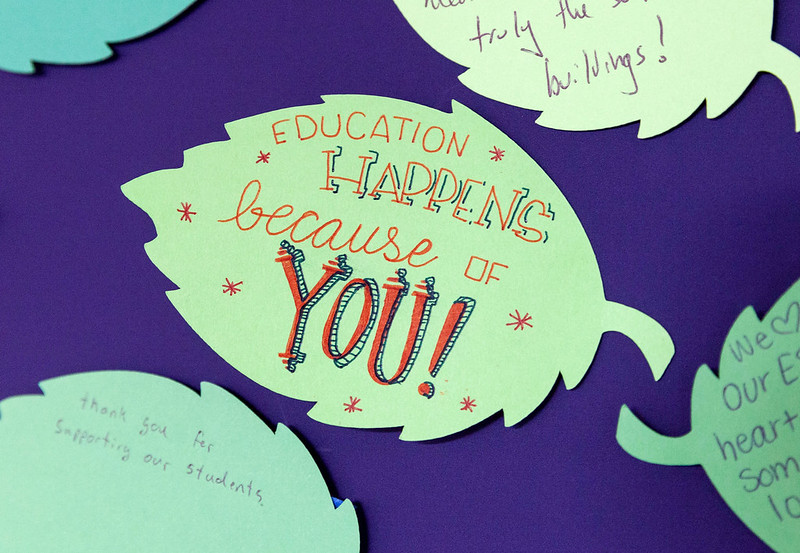 truly the so
buildings!
EDUCATION
HAPPENS
because OF
YOU!
thank you for
supporting our students.
We ♡
our ES
heart
som